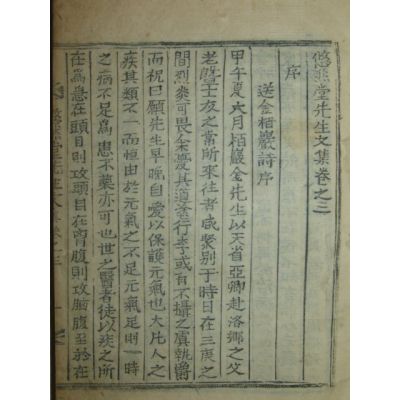 悠然堂先生文集卷之三
序
送金栢巖詩序
甲午夏六月栢巖金先生以天省亞卿赴洛鄕之父
老曁士友之嘗所來往者咸聚別于時日在三庚之
間烈炎可畏僉慶其道塗行李或有不攝之虞執爵
而祝曰願先生早晩自愛以保護元氣也大凡人之
疾其類不一而恒由於元氣之不足元氣足則一時
之病不足爲患不藥亦可也世之醫者徒以疾之所
在爲急在頭目則攻頭目在胷腹則攻胸腹至於在